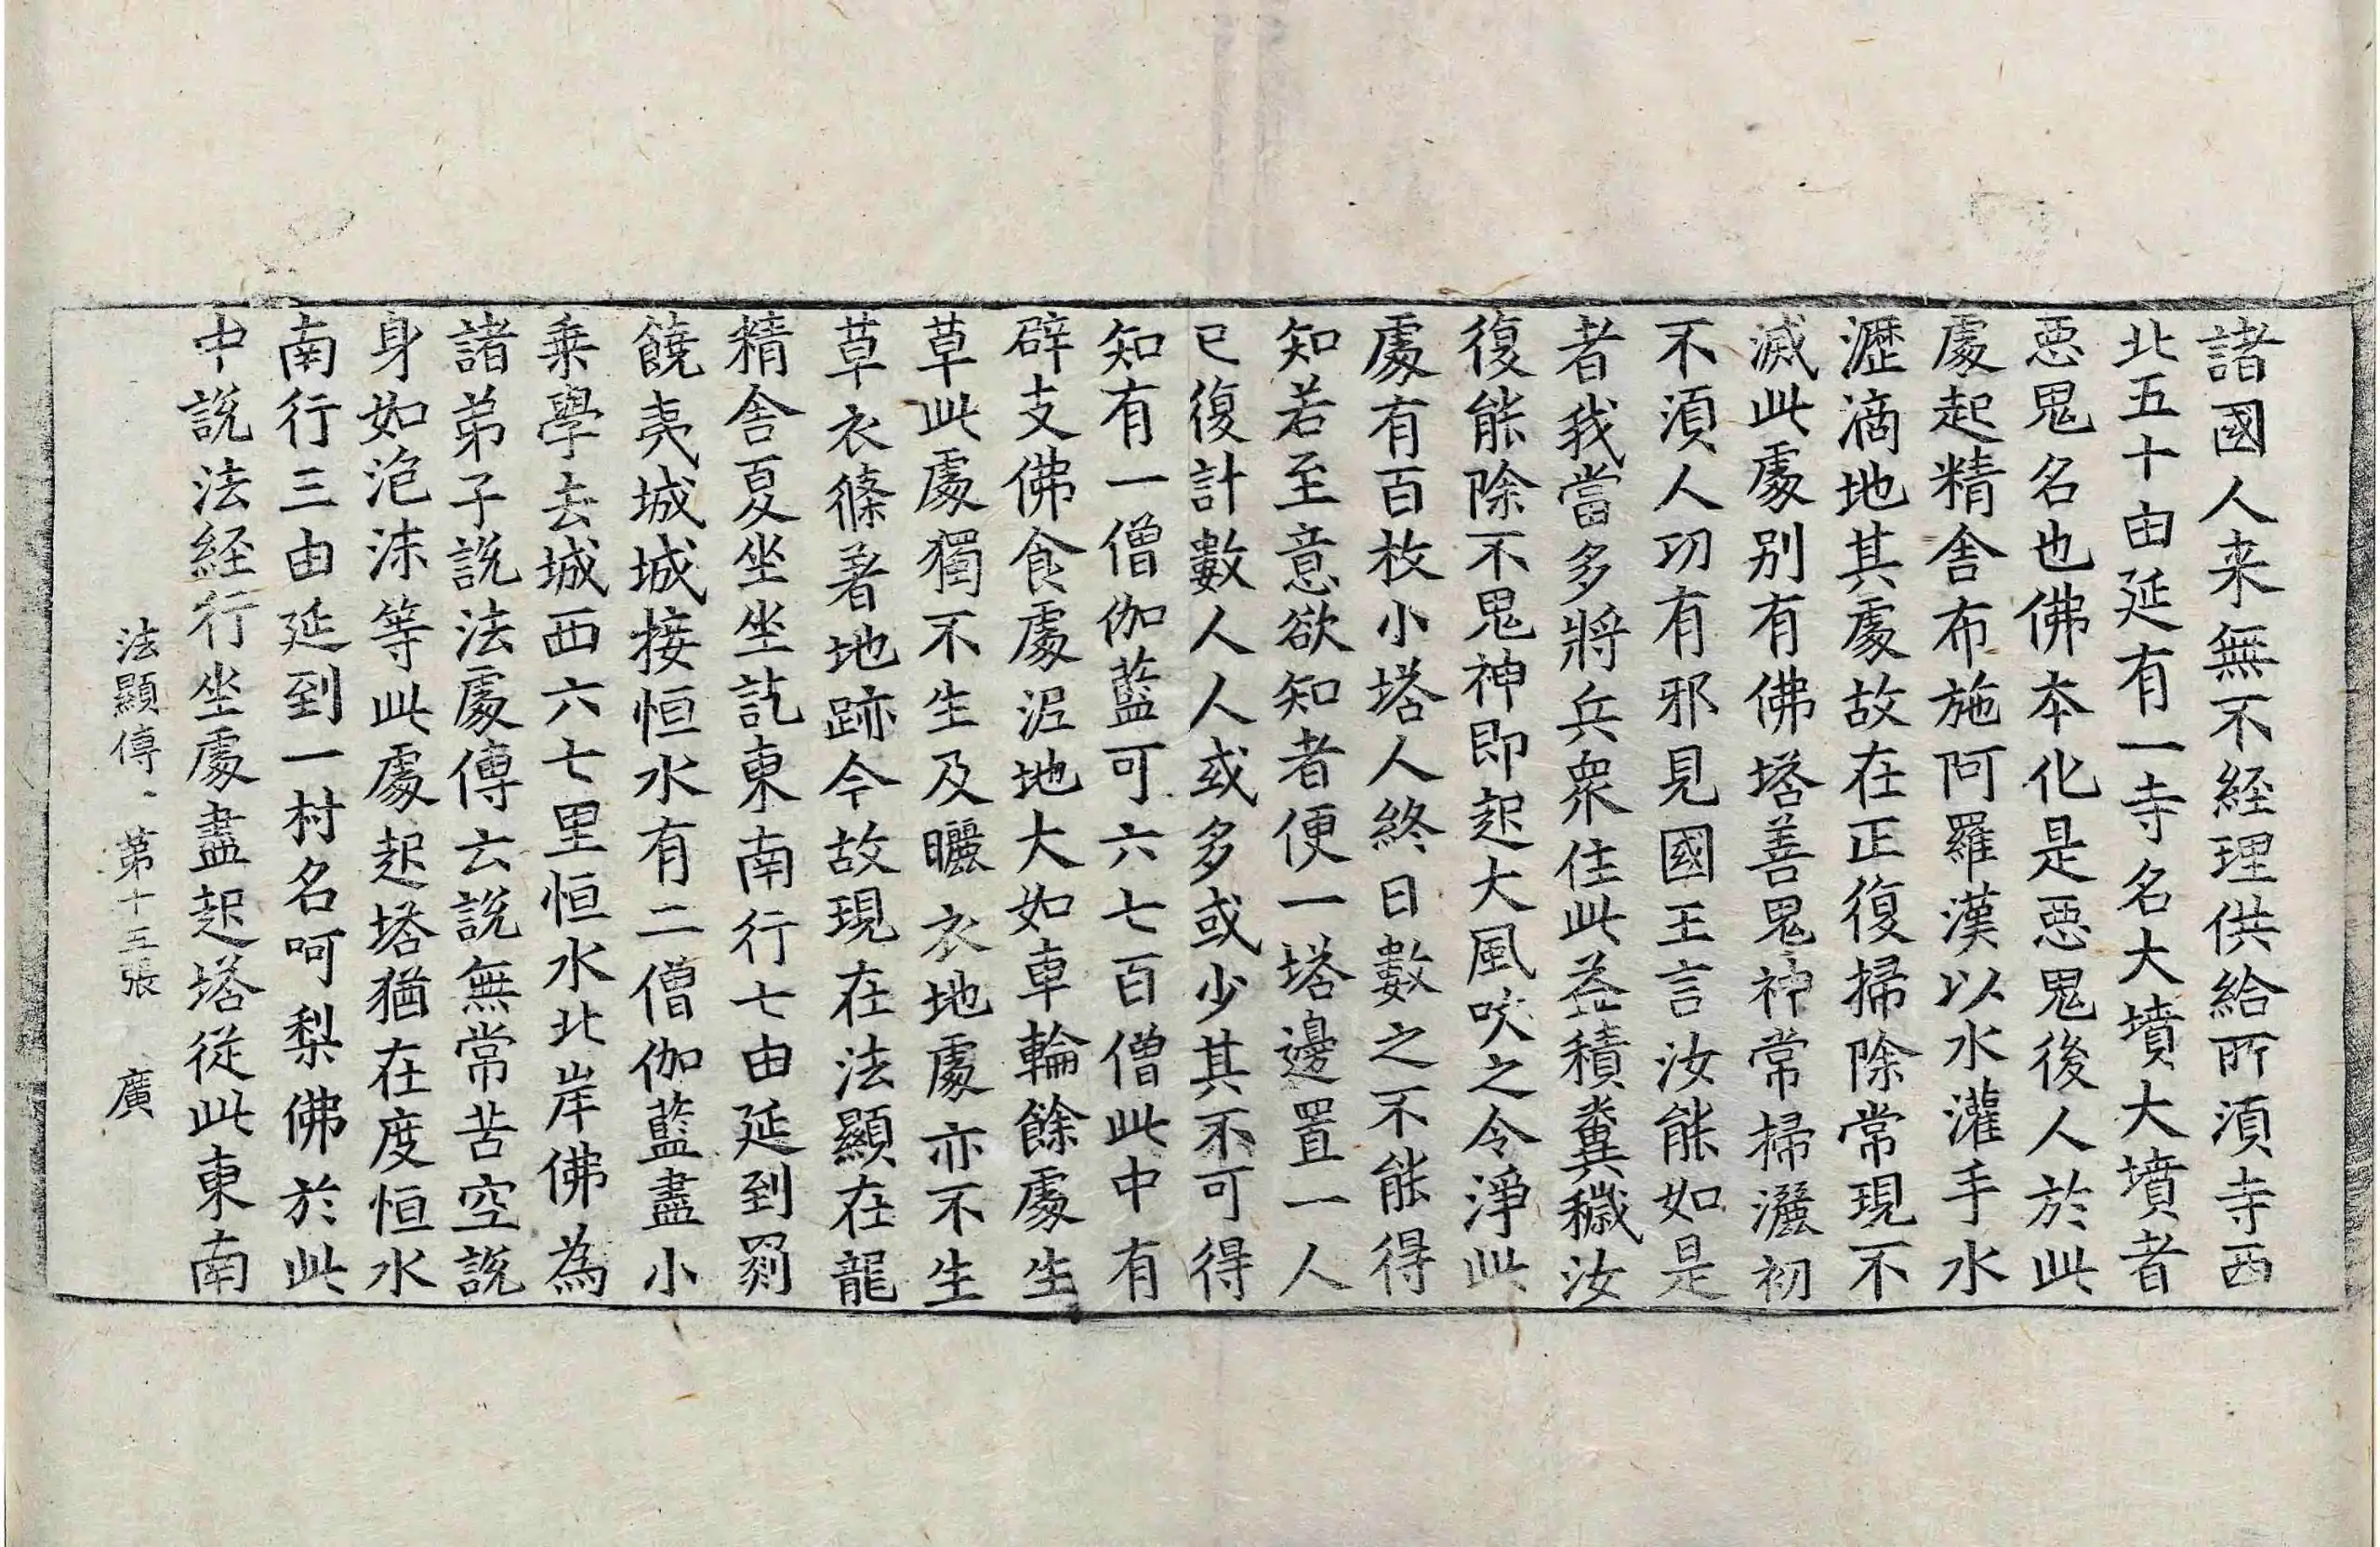 諸國人来無不経理供給所湏寺西
北五十由延有一寺名大墳大墳者
惡鬼名也佛本化是惡鬼後人於此
處起精舍布施阿羅漢以水灌手水
瀝滴地其處故在正復掃除常現不
滅此處别有佛塔善鬼神常掃灑初
不湏人功有邪見國王言汝能如是
者我當多將兵衆住此益積糞穢汝
復能除不鬼神即起大風吹之令淨此
處有百枚小塔人終日數之不能得
知若至意欲知者便一塔邊置一人
已復計數人人或多或少其不可得
知有一僧伽藍可六七百僧此中有
辟支佛食處泥地大如車輪餘處生
草此處獨不生及曬衣地處亦不生
草衣絛著地跡今故現在法顯在龍
精舍夏坐坐訖東南行七由延到罽
饒夷城城接恒水有二僧伽藍盡小
乗學去城西六七里恒水北岸佛為
諸弟子說法處傳云說無常苦空說
身如泡沫等此處起塔猶在度恒水
南行三由延到一村名呵梨佛於此
中說法経行坐處盡起塔從此東南
法顯傳 第十五張 廣